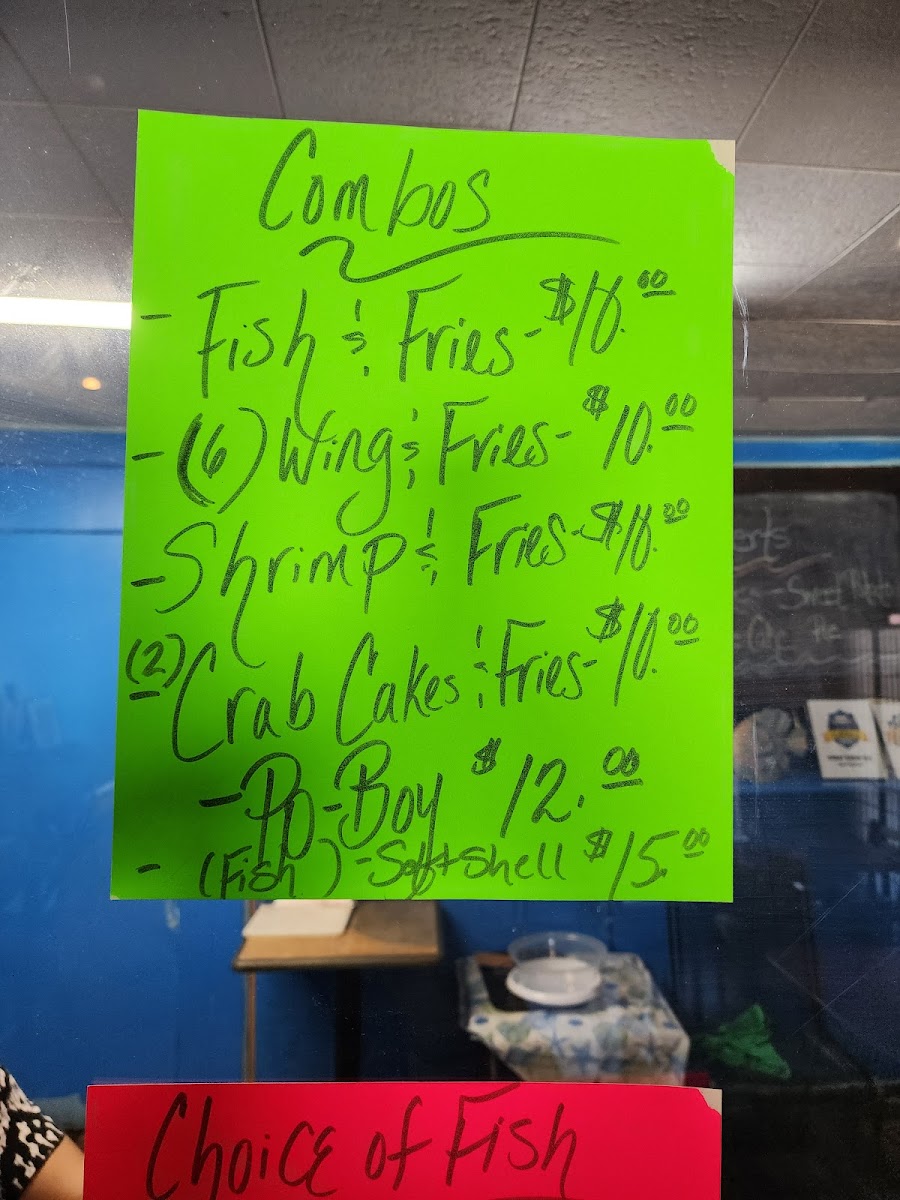 Combos
- Fish & Fries - $18.00
- (6) Wing & Fries - $10.00
- Shrimp & Fries - $18.00
(2) Crab Cakes & Fries - $10.00
- Po-Boy $12.00
- (Fish) - Soft Shell $15.00
Choice of Fish